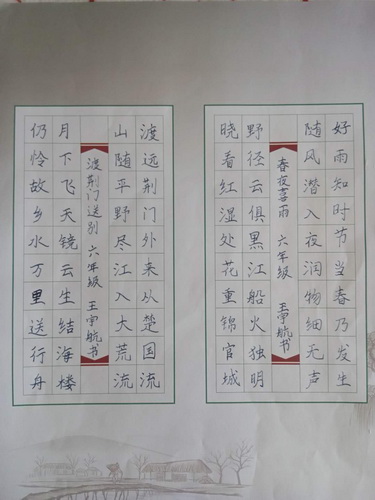 好雨知时节当春乃发生
随风潜入夜润物细无声
春夜喜雨 六年级 王宇航书
野径云俱黑江船火独明
晓看红湿处花重锦官城
渡远荆门外来从楚国流
山随平野尽江入大荒流
渡荆门送别 六年级 王宇航书
月下飞天镜云生结海楼
仍怜故乡水万里送行舟